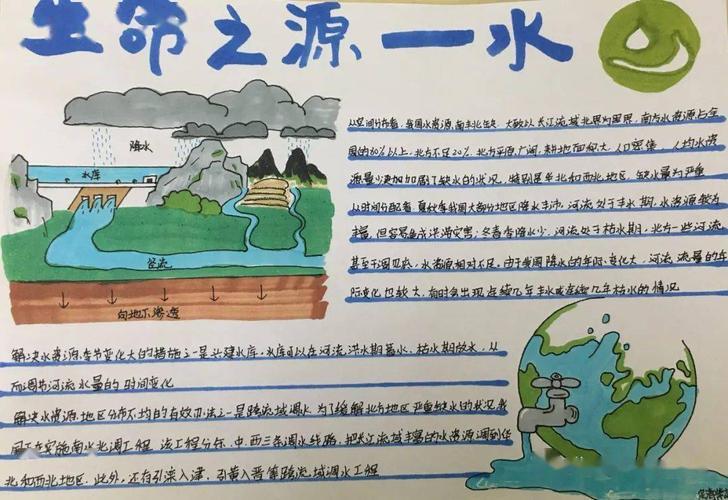 生命之源—水
降水
水库
径流
向地下渗透
从空间分布看，我国水资源南丰北缺。大致以长江流域北界为界限，南方水资源占全
国的80%以上，北方不足20%。北方平原广阔，耕地面积大，人口密集，人均水资
源量少，更加加剧了缺水的状况，特别是华北和西北地区，缺水最为严重
从时间分配看，夏秋季我国大部分地区降水丰沛，河流处于丰水期，水资源较
丰富，但容易造成洪涝灾害；冬春季降水少，河流处于枯水期，北方一些河流
甚至干涸见底，水资源相对不足。由于我国降水的年际变化大，河流流量的年
际变化也较大，有时会出现连续几年丰水或连续几年枯水的情况
解决水资源季节变化大的措施之一是兴建水库，水库可以在河流洪水期蓄水，枯水期放水，从
而调节河流水量的时间变化
解决水资源地区分布不均的有效办法之一是跨流域调水。为了缓解北方地区严重缺水的状况，我
国正在实施南水北调工程。该工程分东、中、西三条调水线路，把长江流域丰富的水资源调到华
北和西北地区。此外，还有引滦入津、引黄入晋等跨流域调水工程